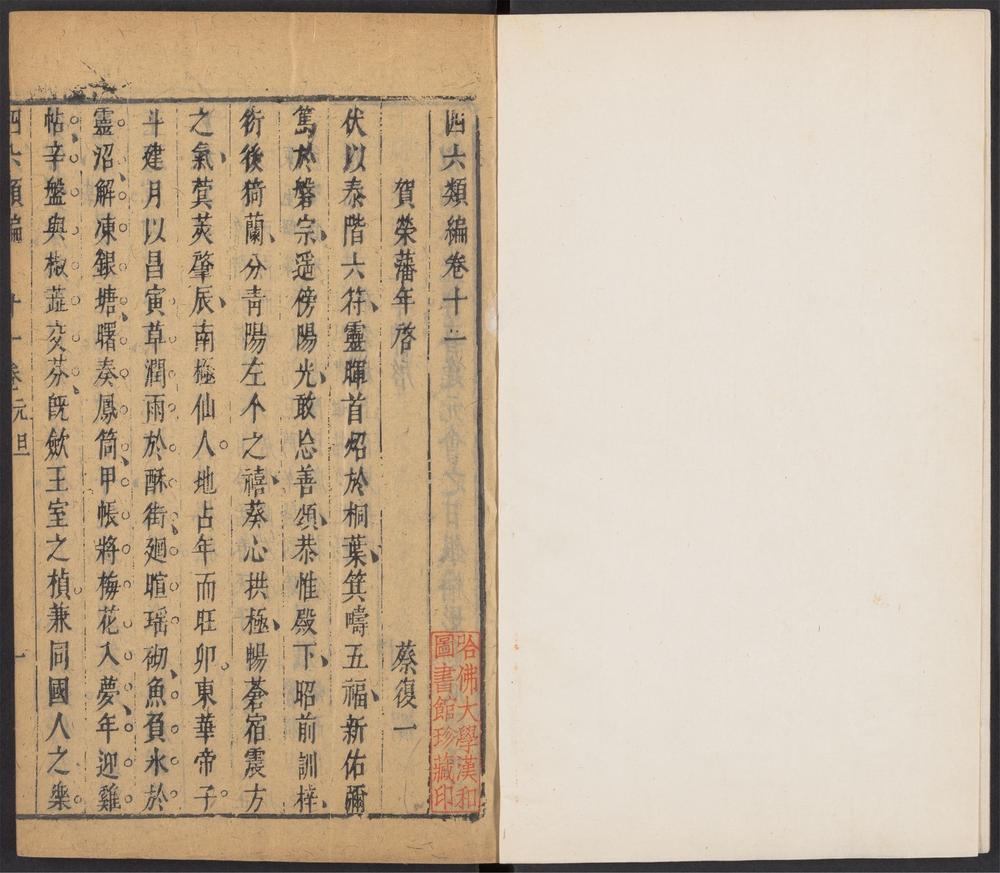 四六類編卷十二
賀榮藩年啓
蔡復一
伏以泰階六符靈暉首炤於桐葉箕疇五福新佑彌
篤於磐宗遥傍陽光敢忘善頌恭惟殿下昭前訓梓
衍後猗蘭分青陽左个之禧葵心拱極暢蒼宿震方
之氣蓂莢肇辰南極仙人地占年而旺卯東華帝子
斗建月以昌寅草潤雨於酥街廻暄瑶砌魚負氷於
靈沼解凍銀塘曙奏鳳筒甲帳將梅花入夢年迎雞
帖辛盤與椒蘂交芬旣歛王室之楨兼同國人之樂
四六類編
卷元旦
一
哈佛大學漢和
圖書館珍藏印